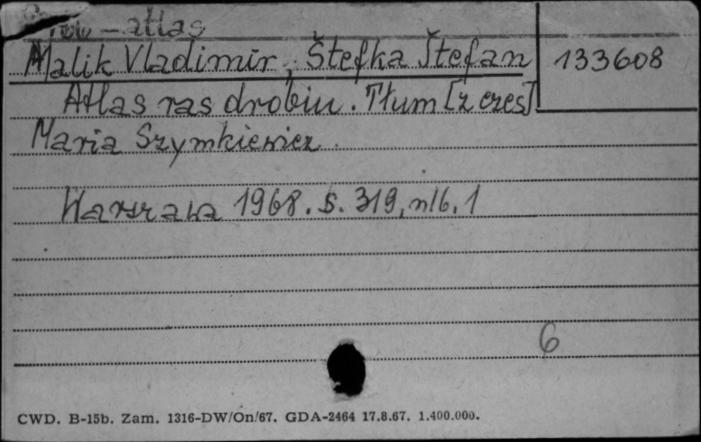 – atlas
Malik Vladimir, Štefka Štefan
133608
Atlas ras drobiu. Tłum [z czes]
Maria Szymkiewicz
Warszawa 1968. s. 319, nlb. 1
6
CWD. B-15b. Zam. 1316-DW/On/67. GDA-2464 17.8.67. 1.400.000.